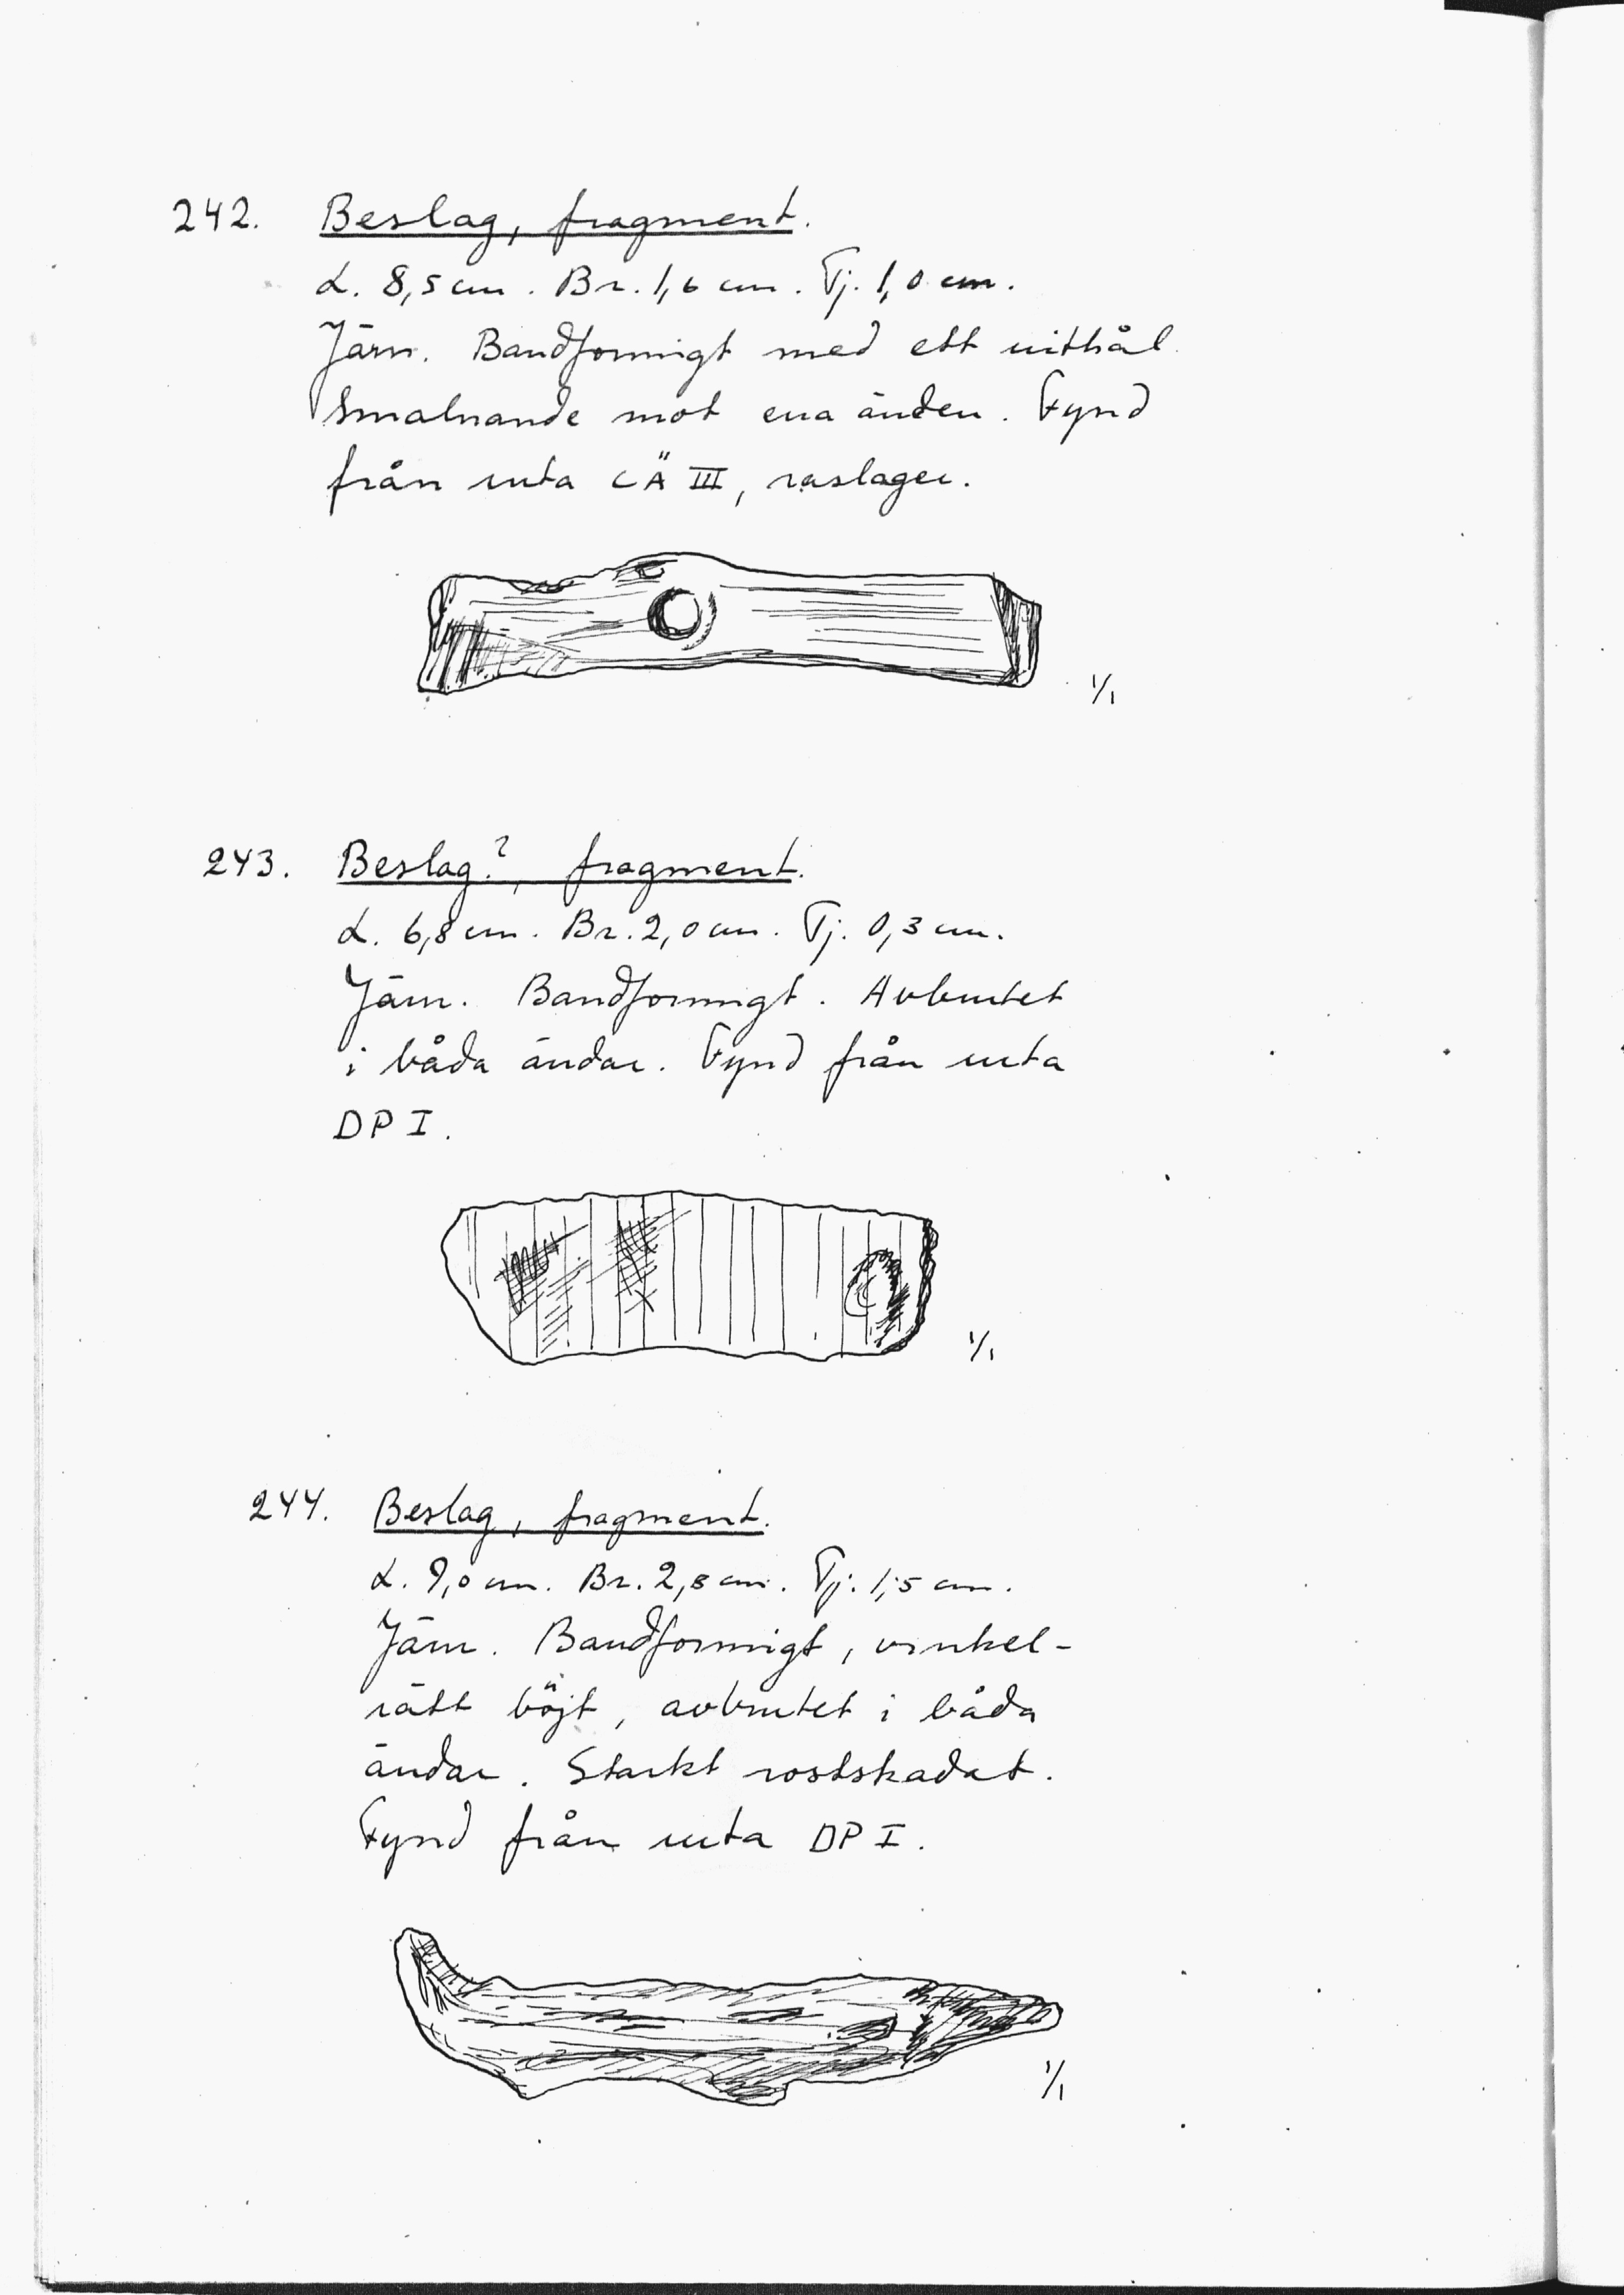 242. Beslag, fragment.
L. 8,5 cm. Br. 1,6 cm. Tj. 1,0 cm.
Järn. Bandformigt med ett nithål.
Smalnande mot ena änden. Fynd
från ruta CÄ III, raslager.
1/1
243. Beslag?, fragment.
L. 6,8 cm. Br. 2,0 cm. Tj. 0,3 cm.
Järn. Bandformigt. Avbrutet
i båda ändar. Fynd från ruta
DP I.
1/1
244. Beslag, fragment.
L. 9,0 cm. Br. 2,8 cm. Tj. 1,5 cm.
Järn. Bandformigt, vinkel-
rätt böjt, avbrutet i båda
ändar. Starkt rostskadat.
Fynd från ruta DP I.
1/1